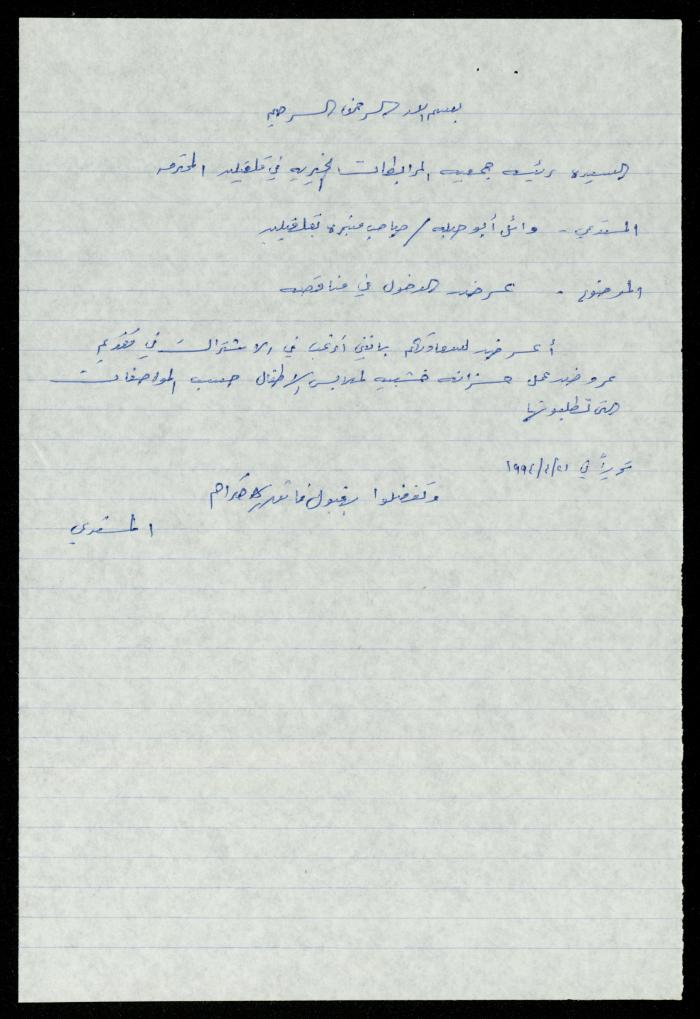 بسم الله الرحمن الرحيم
السيدة رئيسة جمعية المرابطات الخيرية في قلقيلية المحترمة
المستدعي - وائل أبو / صاحب منجرة بقلقيلية
الموضوع - عرض الدخول في مناقصة
أعرض لسعادتكم بانني أرغب في الاشتراك في تقديم
عروض عمل خزانة خشبية لملابس الاطفال حسب المواصفات
التي تطلبونها
تحريراً في ٢١/٤/١٩٩٤
وتفضلوا بقبول فائق الاحترام
المستدعي